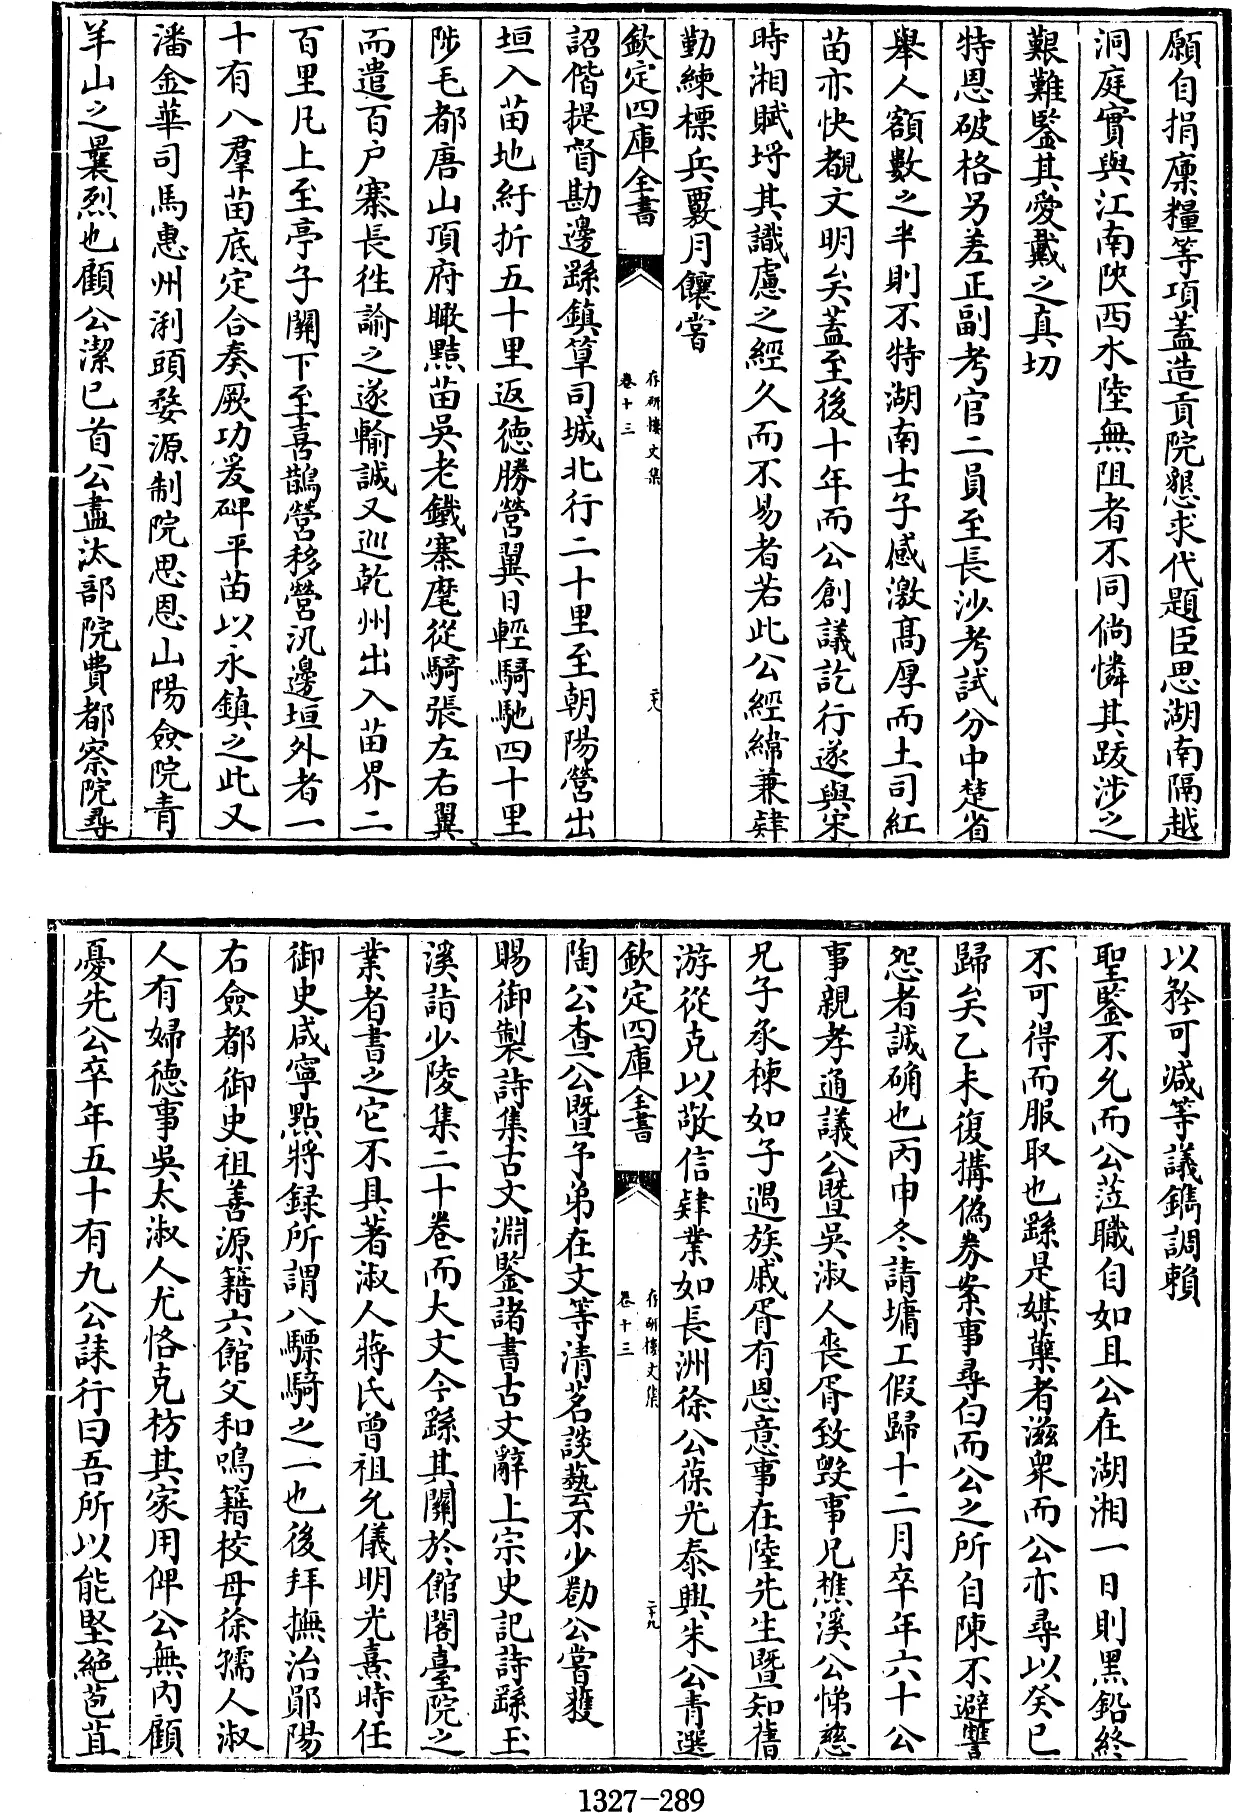 願自捐廪糧等項蓋造貢院懇求代題臣思湖南隔越
洞庭實與江南陜西水陸無阻者不同倘憐其跋涉之
艱難鑒其愛戴之真切
特恩破格另差正副考官二員至長沙考試分中楚省
舉人額數之半則不特湖南士子感激高厚而土司紅
苗亦快覩文明矣蓋至後十年而公創議訖行遂與宋
時湘賦埒其識慮之經久而不易者若此公經緯兼肄
勤練標兵覈月饟嘗
欽定四庫全書
存研樓文集
卷十三
二十八
詔偕提督勘邊繇鎮筸司城北行二十里至朝陽營出
垣入苗地紆折五十里返徳勝營翼日輕騎馳四十里
陟毛都唐山頂府瞰㸃苗吳老鐵寨麾從騎張左右翼
而遣百户寨長徃諭之遂輸誠又巡乾州出入苗界二
百里凡上至亭子關下至喜鵲營移營汛邊垣外者一
十有八羣苗底定合奏厥功爰碑平苗以永鎮之此又
潘金華司馬惠州浰頭婺源制院思恩山陽僉院青
羊山之曩烈也顧公潔已首公盡汰部院費都察院尋
以矜可減等議鐫調賴
聖鑒不允而公蒞職自如且公在湖湘一日則黑鉛終
不可得而服取也繇是媒蘖者滋衆而公亦尋以癸巳
歸矣乙未復搆偽劵案事尋白而公之所自陳不避讐
怨者誠确也丙申冬請墉工假歸十二月卒年六十公
事親孝通議公暨吳淑人喪胥致毁事兄樵溪公悌慈
兄子承棟如子遇族戚胥有恩意事在陸先生暨知舊
游從克以敬信肄業如長洲徐公葆光泰興朱公青選
欽定四庫全書
存研樓文集
卷十三
二十九
陶公查公暨予弟在文等清茗談藝不少勌公嘗獲
賜御製詩集古文淵鑒諸書古文辭上宗史記詩繇玉
溪詣少陵集二十卷而大文今繇其關於館閣臺院之
業者書之它不具著淑人蔣氏曾祖允儀明光熹時任
御史咸寧㸃將録所謂八驃騎之一也後拜撫治鄖陽
右僉都御史祖善源籍六館父和鳴籍校母徐孺人淑
人有婦徳事吳太淑人尤恪克枋其家用俾公無内顧
憂先公卒年五十有九公誄行曰吾所以能堅絶苞苴
1327-289